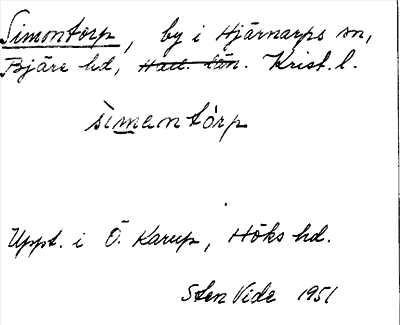 Simontorp, by i Hjärnarps sn,
Bjäre hd, Hall. län. Krist. l.
sìmentórp
Uppt. i Ö. Karup, Höks hd.
Sten Vide 1951